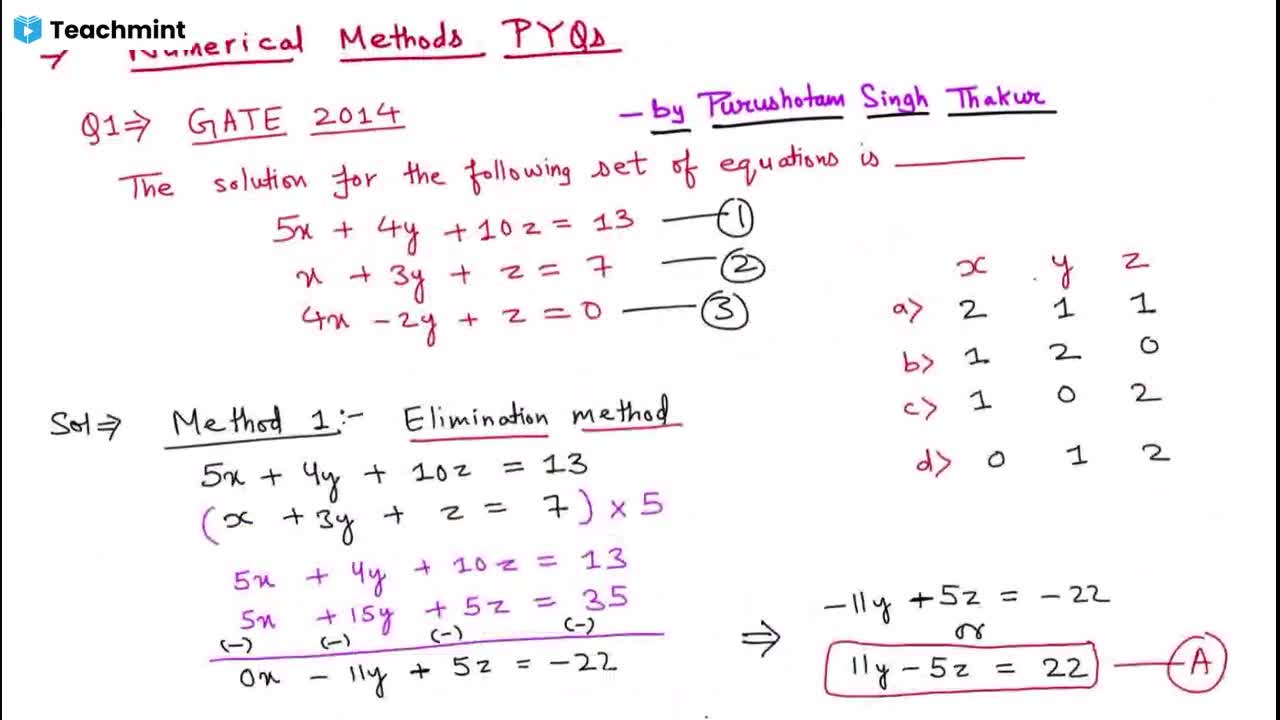 Teachmint
→ Numerical Methods PYQs
Q1⇒ GATE 2014
– by Purushotam Singh Thakur
The solution for the following set of equations is ______
5x + 4y + 10z = 13 — ①
x + 3y + z = 7 — ②
4x - 2y + z = 0 — ③
x y z
a> 2 1 1
b> 1 2 0
c> 1 0 2
d> 0 1 2
Sol⇒ Method 1:- Elimination method
5x + 4y + 10z = 13
(x + 3y + z = 7) × 5
5x + 4y + 10z = 13
5x + 15y + 5z = 35
(-) (-) (-) (-)
0x - 11y + 5z = -22
⇒ -11y + 5z = -22
or
11y - 5z = 22 — Ⓐ